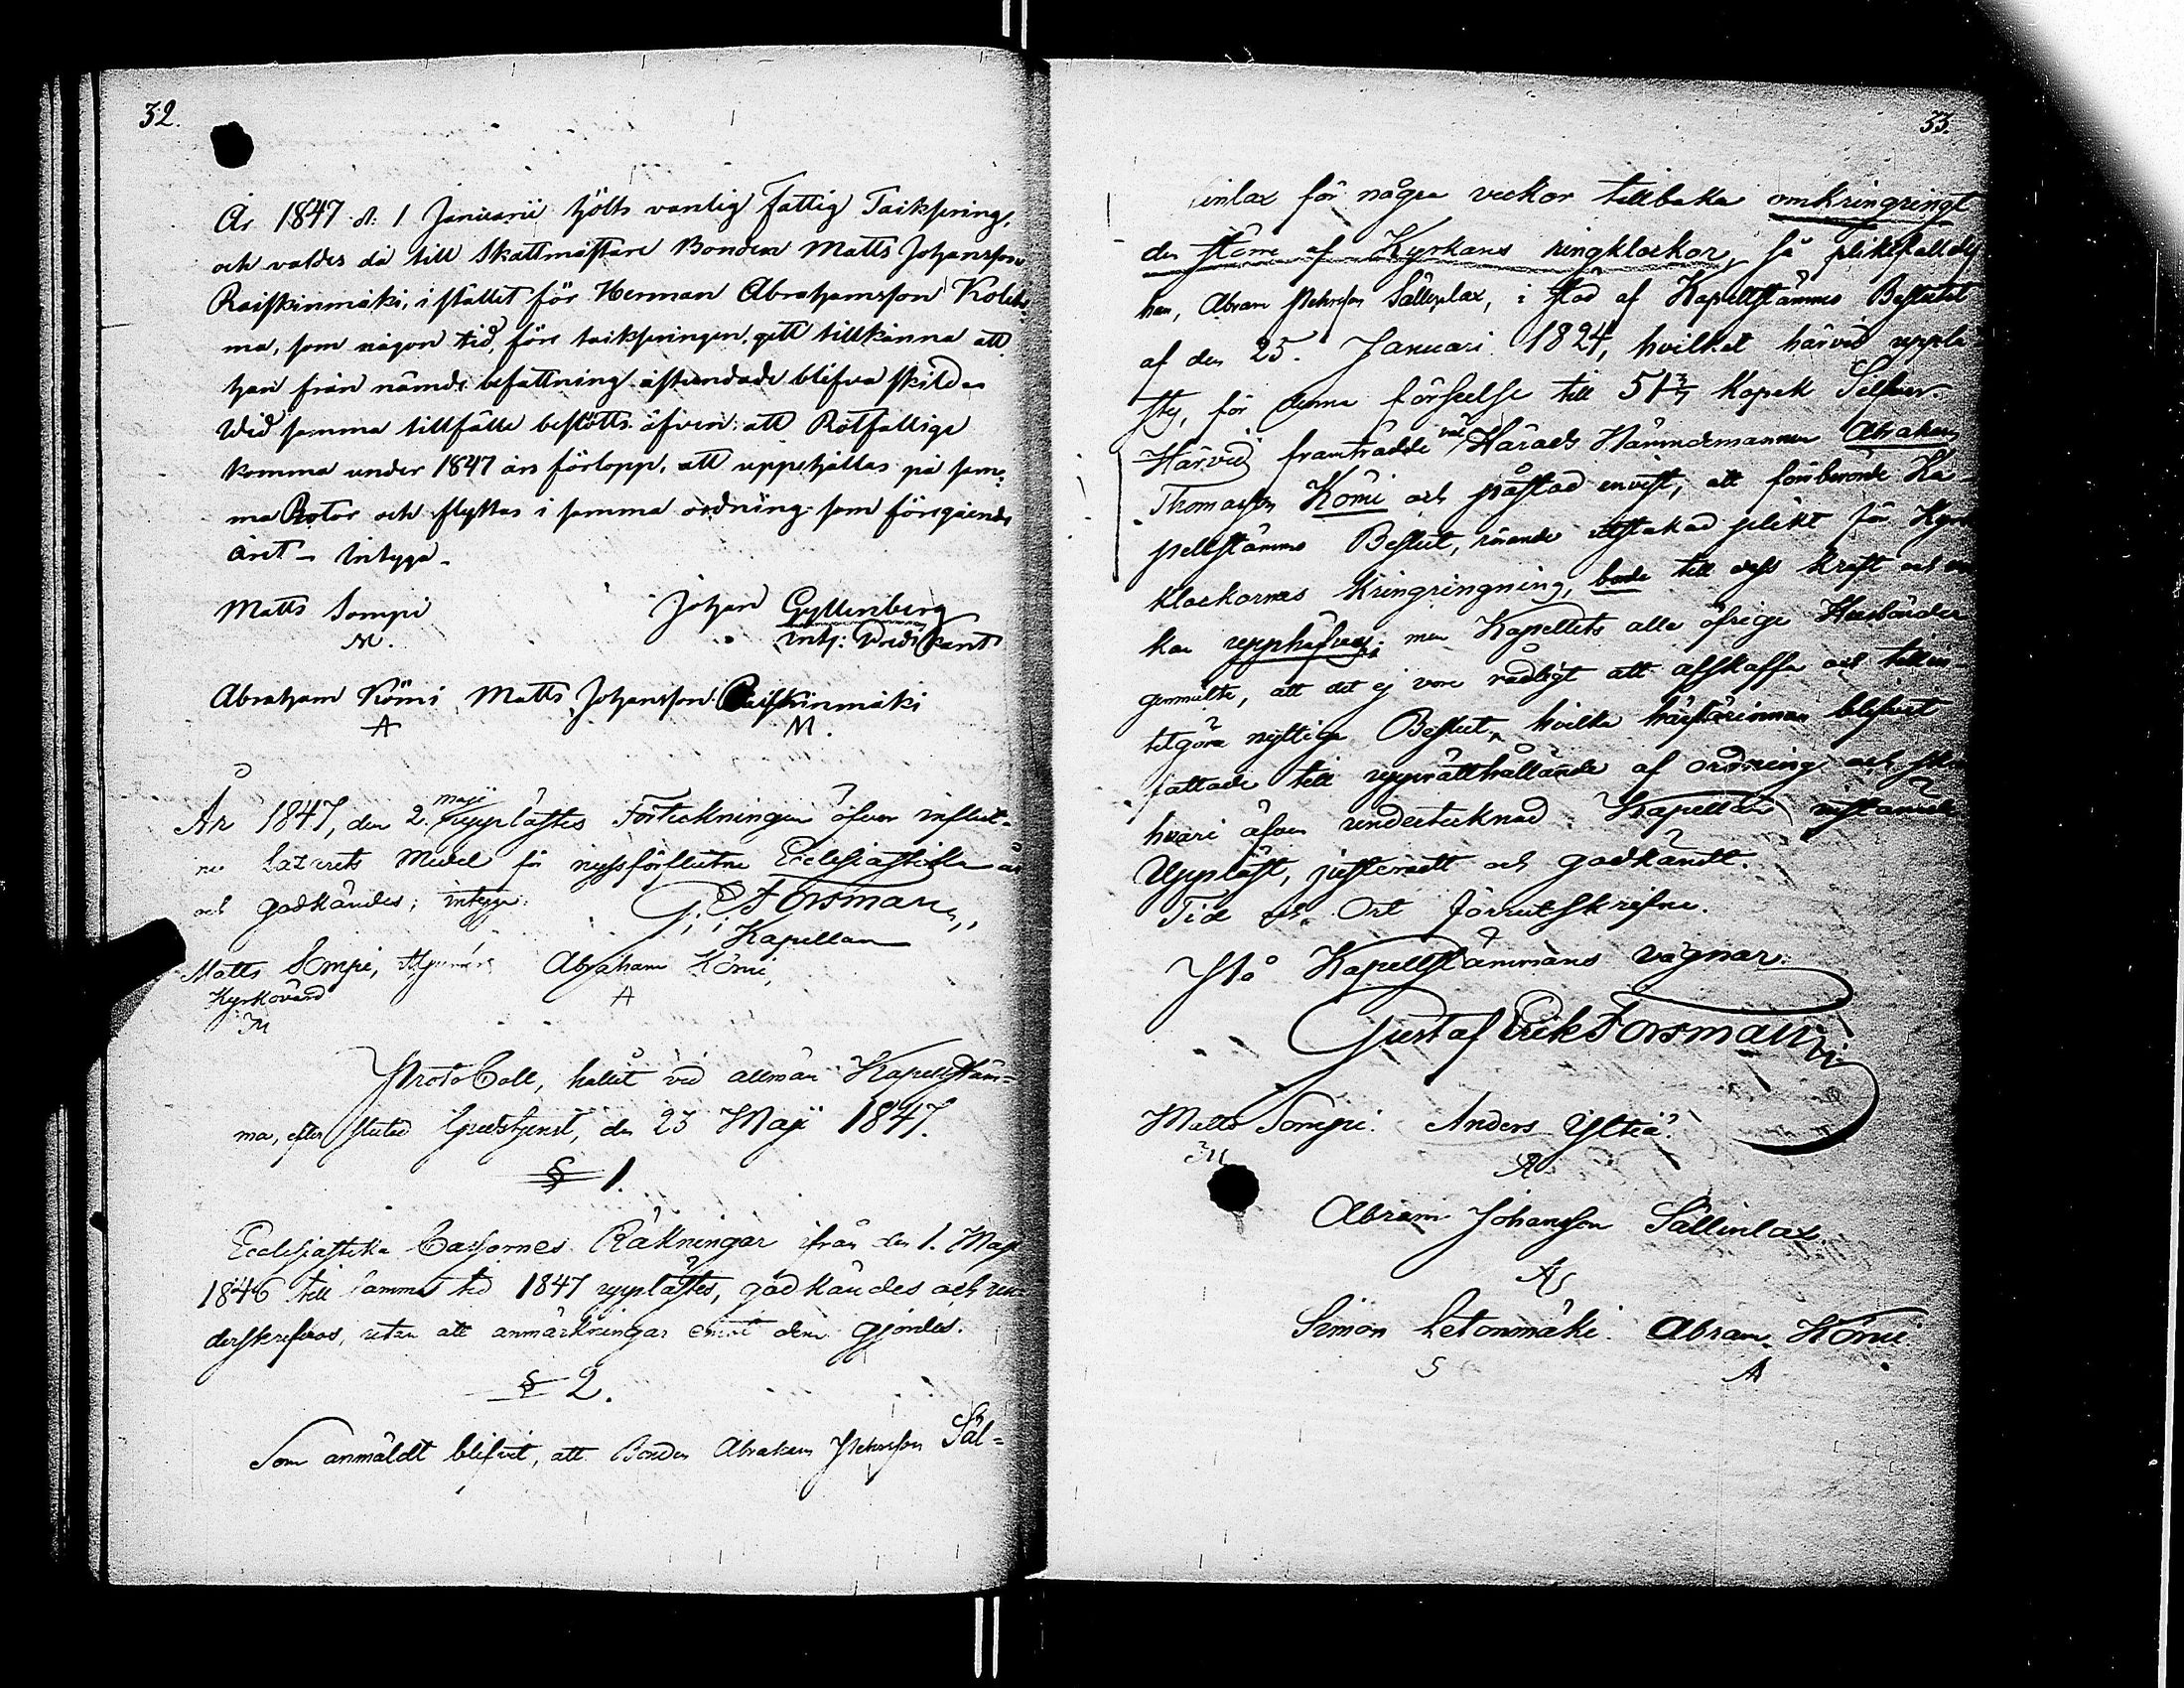 32.
År 1847 d. 1 Januarii hölts vanlig Fattig Taiksering,
och valdes då till Skattmästare Bonden Matts Johansson
Raiskinmäki, i stället för Herman Abrahamsson Koleh-
ma, som någon tid före taikseringen gett tillkänna att
han från nämde befattning åstundade blifva skild.
Wid samma tillfälle bestötts äfven att Rotfattige
komma under 1847 års förlopp, att uppehållas på sam-
ma Rotar och flyttas i samma ordning som föregående
året. Intyga.
Matts Sompi
M.
Johan Gyllenberg
Abraham Kömi Matts Johansson Raiskinmäki
A M.
År 1847, den 2. Maji upplästes Förteckningen öfver influt-
ne Lazarets Medel för nyssförflutne Ecclesiastika år
och godkändes; intyga:
G: E Forsman,
Kapellan
Matts Sompi, Abraham Kömi,
Kyrkovärd A
M
Protocoll, hållit vid allmän Kapellstäm-
ma, efter slutad Gudstjenst, den 23 Maji 1847.
§ 1.
Ecclesiastika Cassornes Räkningar ifrån den 1. Maji
1846 till samma tid 1847 upplästes, godkändes och un-
derskrefvos, utan att anmärkningar emot dem gjordes.
§ 2.
Som anmäldt blifvit, att Bonden Abraham Pehrsson Säl-
33.
linlax för några veckor tillbaka omkringringt
den större af Kyrkans ringklockor, så pliktfälldes
han, Abram Pehrsson Sällinlax, i stöd af Kapellstämmo Beslutet
af den 25. Januari 1824, hvilket härvid upplä-
stes, för denna förseelse till 51 3/7 Kopek Silfver.
Härvid framträdde väl Härads Nämndemannen Abraham
Thomasson Kömi och påstod envist, att förberörde Ka-
pellstämmo Beslut, rörande utstakad plikt för Kyrk-
klockornas kringringning, borde till dess kraft och
kan upphäfvas; men Kapellets alla öfrige Husbönder
genmälte, att det ej vore rådligt att afskaffa och tillin-
tetgöra nyttiga Beslut, hvilka härförinnan blifvit
fattade till upprätthållande af ordning och
hvari äfven undertecknad Kapellan instämde
Uppläst, justeradt och godkändt.
Tid och Ort förrutskrifne.
På Kapellstämmans vägnar:
Gustaf Erik Forsman
Matts Sompi. Anders Yltiä.
M A
Abram Johansson Sällinlax.
A
Simon Letonmäki. Abram Kömi.
S A